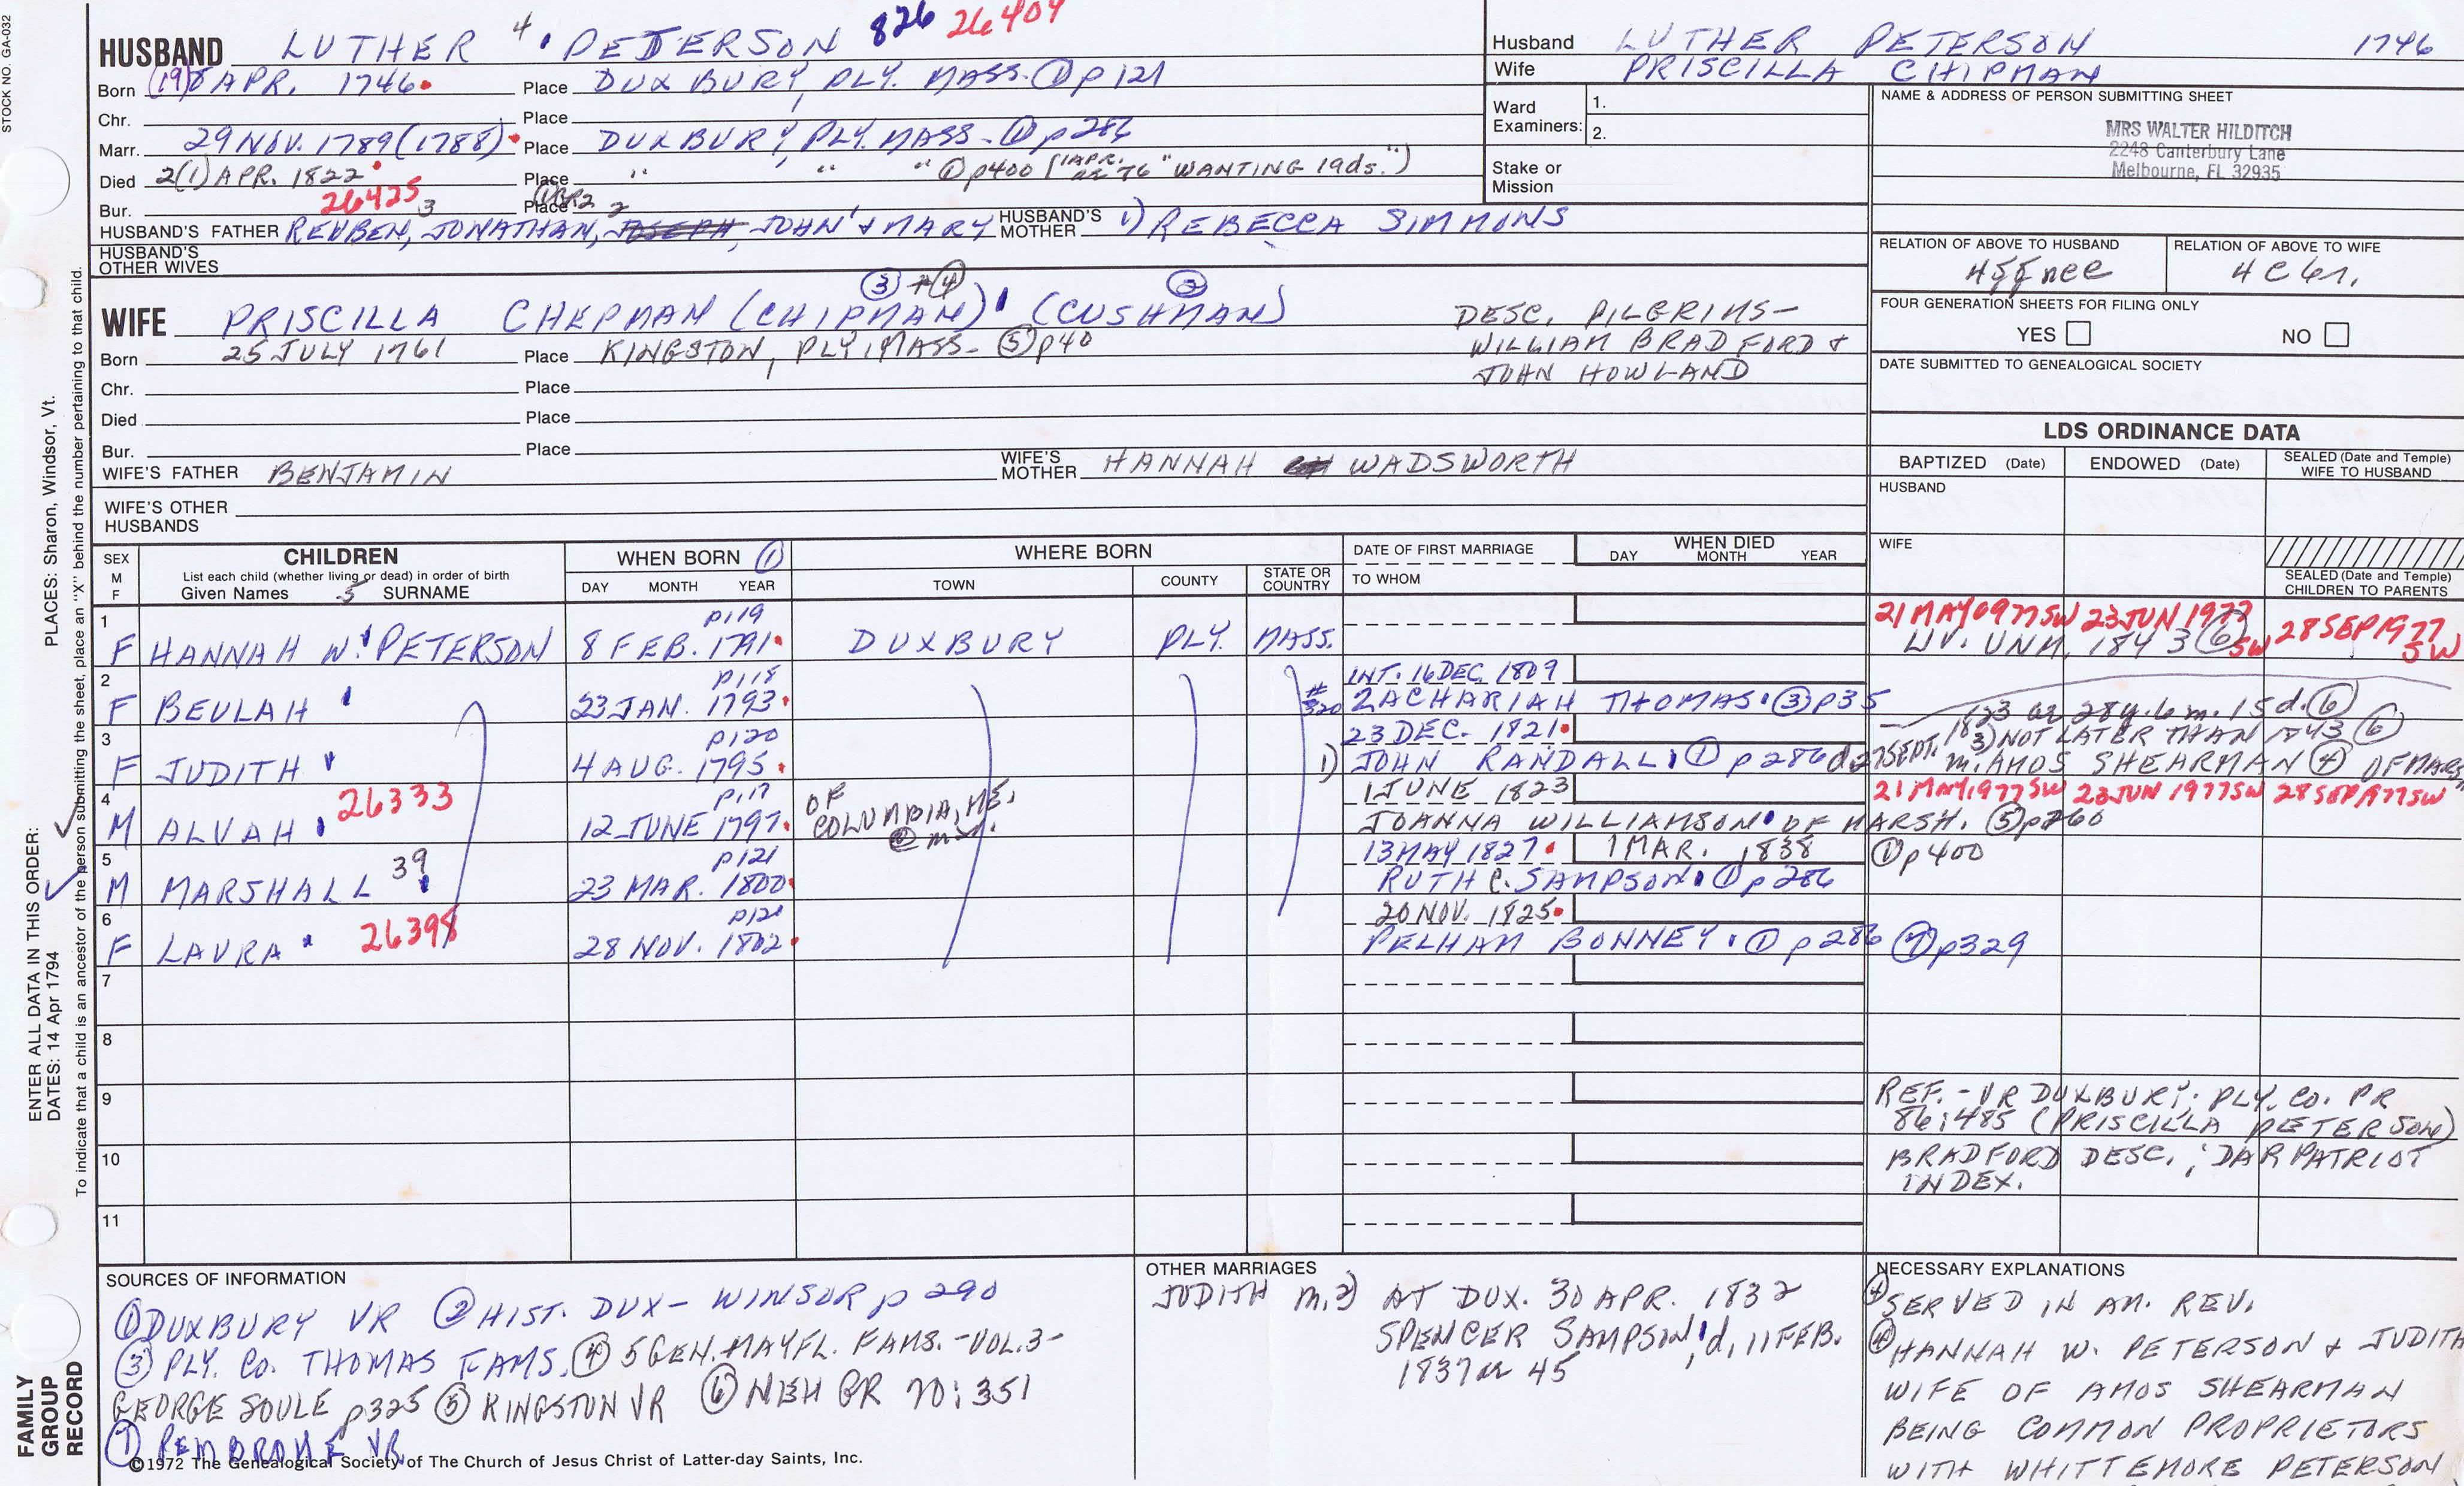 STOCK NO. GA-032
HUSBAND LUTHER 4 PETERSON 826 26404
Born (19)8 APR. 1746 Place DUXBURY, PLY. MASS. ① p 121
Chr. Place
Marr. 29 NOV. 1789 (1788) Place DUXBURY, PLY. MASS. ① p 286
Died 2(1) APR. 1822 Place " " " ① p400 (1 APR. ae 76 "WANTING 19ds.")
Bur. 26425 Place
HUSBAND'S FATHER REUBEN,3 JONATHAN,2 JOHN1 & MARY HUSBAND'S MOTHER 1) REBECCA SIMMONS
HUSBAND'S OTHER WIVES
Husband LUTHER PETERSON 1746
Wife PRISCILLA CHIPMAN
Ward Examiners: 1.
2.
Stake or Mission
NAME & ADDRESS OF PERSON SUBMITTING SHEET
MRS WALTER HILDITCH
2248 Canterbury Lane
Melbourne, FL 32935
RELATION OF ABOVE TO HUSBAND RELATION OF ABOVE TO WIFE
4C 6r.
FOUR GENERATION SHEETS FOR FILING ONLY
YES NO
DATE SUBMITTED TO GENEALOGICAL SOCIETY
③ + ④ ②
WIFE PRISCILLA CHEPMAN (CHIPMAN) (CUSHMAN)
Born 25 JULY 1761 Place KINGSTON, PLY, MASS- ⑤ p40
DESC. PILGRIMS-
WILLIAM BRADFORD &
JOHN HOWLAND
Chr. Place
Died Place
Bur. Place
WIFE'S FATHER BENJAMIN WIFE'S MOTHER HANNAH WADSWORTH
WIFE'S OTHER HUSBANDS
LDS ORDINANCE DATA
BAPTIZED (Date) ENDOWED (Date) SEALED (Date and Temple) WIFE TO HUSBAND
HUSBAND
WIFE
SEALED (Date and Temple) CHILDREN TO PARENTS
SEX M F CHILDREN WHEN BORN ① WHERE BORN DATE OF FIRST MARRIAGE WHEN DIED
List each child (whether living or dead) in order of birth
Given Names 5 SURNAME DAY MONTH YEAR TOWN COUNTY STATE OR COUNTRY TO WHOM DAY MONTH YEAR
1 p119 21 MAY 1977 SW 23 JUN 1977 SW 28 SEP 1977 SW
F HANNAH W. PETERSON 8 FEB. 1791 DUXBURY PLY. MASS. LIV. UNM. 1843 ⑥
2 p118 INT. 16 DEC. 1809
F BEULAH 23 JAN. 1793 ZACHARIAH THOMAS ③ p35
3 p120 23 DEC. 1821
F JUDITH 4 AUG. 1795 1) JOHN RANDALL ① p 286 d 27 SEPT. 1823 ae 28y. 6 m. 15 d. ⑥
3) NOT LATER THAN 1843 ⑥
m. AMOS SHEARMAN ④ OF MARSH
4 26333 p117 OF COLUMBIA, ME. ② 1 JUNE 1823 21 MAY 1977 SW 23 JUN 1977 SW 28 SEP 1977 SW
M ALVAH 12 JUNE 1797 JOANNA WILLIAMSON OF MARSH. ⑤ p260
5 39 p121 13 MAY 1827 1 MAR. 1838 ① p400
M MARSHALL 23 MAR. 1800 RUTH C. SAMPSON ① p 286
6 26398 p121 20 NOV. 1825
F LAURA 28 NOV. 1802 PELHAM BONNEY ① p 286 ⑦ p329
7
8
9
10
11
REF. - VR DUXBURY; PLY. CO. PR
86:485 (PRISCILLA PETERSON)
BRADFORD DESC.; DAR PATRIOT
INDEX.
SOURCES OF INFORMATION
① DUXBURY VR ② HIST. DUX - WINSOR p 290
③ PLY. CO. THOMAS FAMS. ④ 5 GEN. MAYFL. FAMS. - VOL. 3 -
GEORGE SOULE p325 ⑤ KINGSTON VR ⑥ NEH GR 70:351
⑦ PEMBROKE VR
©1972 The Genealogical Society of The Church of Jesus Christ of Latter-day Saints, Inc.
OTHER MARRIAGES
JUDITH m. 2) AT DUX. 30 APR. 1832
SPENCER SAMPSON, d. 11 FEB.
1837 ae 45
NECESSARY EXPLANATIONS
④ SERVED IN AM. REV.
④ HANNAH W. PETERSON & JUDITH
WIFE OF AMOS SHEARMAN
BEING COMMON PROPRIETORS
WITH WHITTEMORE PETERSON
ENTER ALL DATA IN THIS ORDER: PLACES: Sharon, Windsor, Vt.
DATES: 14 Apr 1794
To indicate that a child is an ancestor of the person submitting the sheet, place an "X" behind the number pertaining to that child.
FAMILY GROUP RECORD